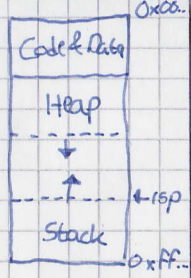 0x00..
Code & Data
Heap
←rsp
Stack
0xff..